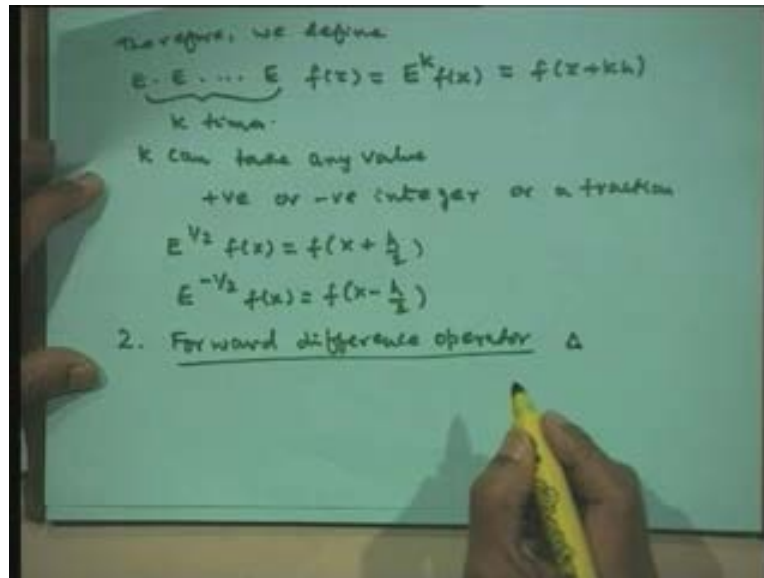 Therefore, we define
E . E . ... E f(x) = E^k f(x) = f(x+kh)
k times.
k can take any value
+ve or -ve integer or a fraction
E^{1/2} f(x) = f(x + h/2)
E^{-1/2} f(x) = f(x - h/2)
2. Forward difference operator Δ